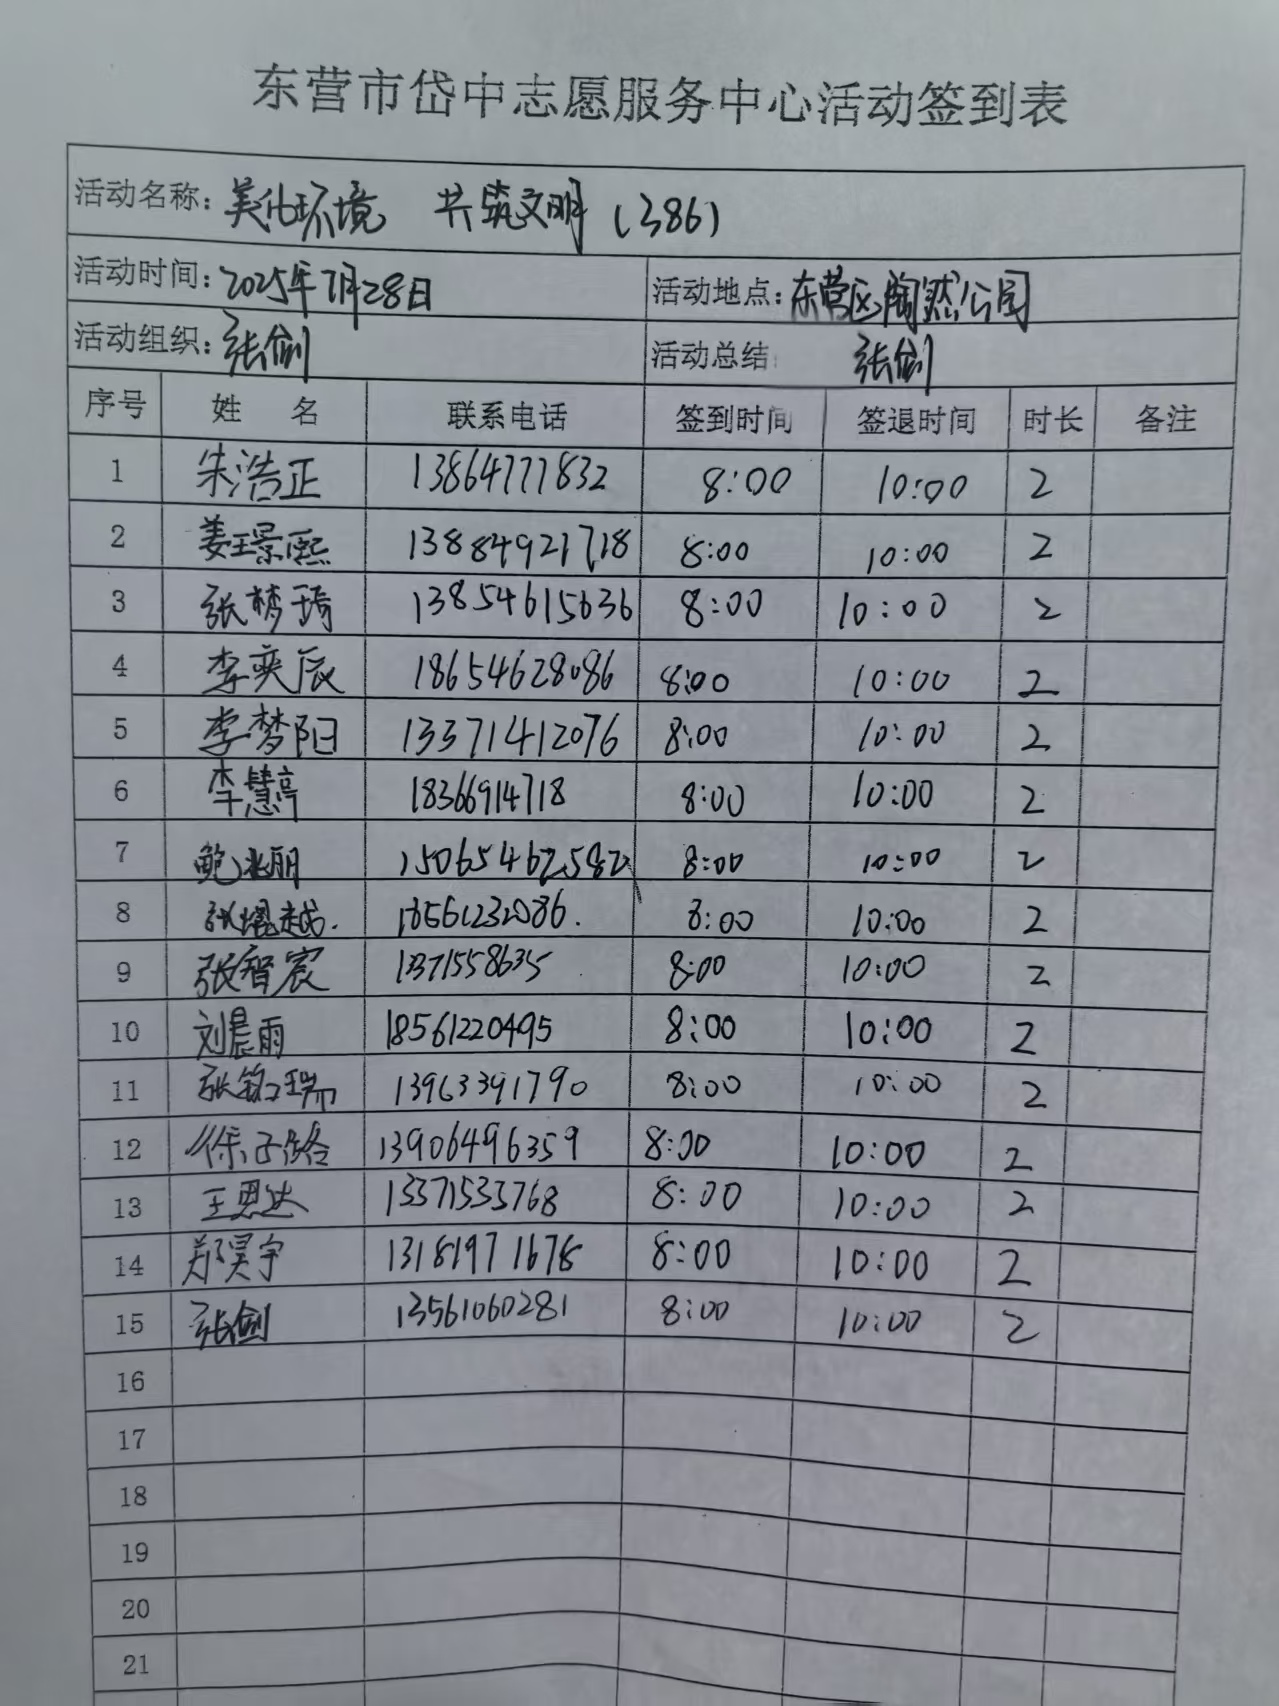 东营市岱中志愿服务中心活动签到表
活动名称：美化环境 共筑文明（386）
活动时间：2025年7月28日 活动地点：东营区陶然公园
活动组织：张剑 活动总结： 张剑
序号 姓 名 联系电话 签到时间 签退时间 时长 备注
1 朱浩正 13864777832 8:00 10:00 2
2 姜王景熙 13884921718 8:00 10:00 2
3 张梦琦 13854615636 8:00 10:00 2
4 李奕辰 18654628086 8:00 10:00 2
5 李梦阳 13371412076 8:00 10:00 2
6 李慧亭 18366914718 8:00 10:00 2
7 鲍兆丽 15065462582 8:00 10:00 2
8 张 越. 18561232086. 8:00 10:00 2
9 张智宸 13371558635 8:00 10:00 2
10 刘晨雨 18561220495 8:00 10:00 2
11 张铭瑞 13963391790 8:00 10:00 2
12 徐子 13906496359 8:00 10:00 2
13 王思达 13371533768 8:00 10:00 2
14 郑昊宇 13181971678 8:00 10:00 2
15 张剑 13561060281 8:00 10:00 2
16
17
18
19
20
21